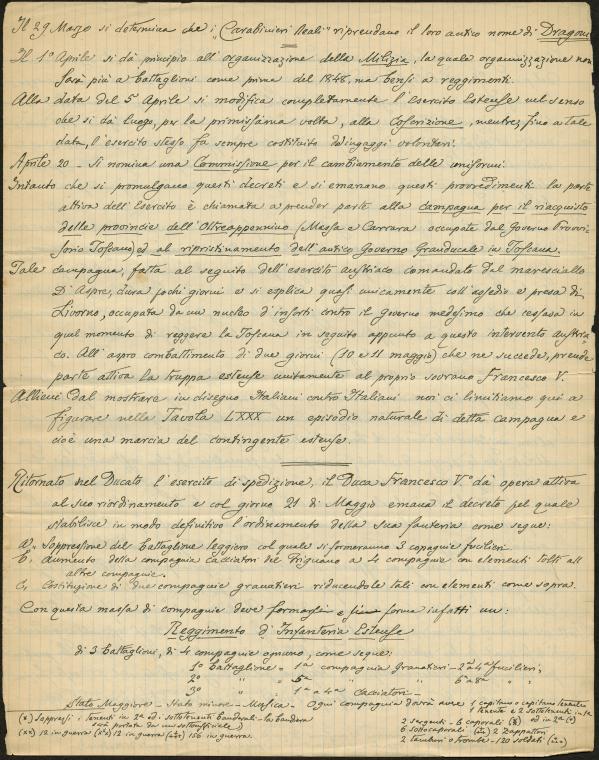 Il 29 Marzo si determina che i "Carabinieri Reali" riprendano il loro antico nome di Dragoni
Il 1º Aprile si dà principio all'organizzazione della Milizia, la quale organizzazione non
sarà più a battaglioni come prima del 1848, ma bensì a reggimenti.
Alla data del 5 Aprile si modifica completamente l'esercito Estense nel senso
che si dà luogo, per la primissima volta, alla Coscrizione, mentre, fino a tale
data, l'esercito stesso fu sempre costituito d'ingaggi volontari.
Aprile 20 - Si nomina una Commissione per il cambiamento delle uniformi.
Intanto che si promulgano questi decreti e si emanano questi provvedimenti la parte
attiva dell'Esercito è chiamata a prender parte alla campagna per il riacquisto
delle provincie dell'Oltreappennino (Massa e Carrara occupate dal Governo Provvi-
sorio Toscano) ed al ripristinamento dell'antico Governo Granducale in Toscana.
Tale campagna, fatta al seguito dell'esercito austriaco comandato dal maresciallo
D'Aspre, dura pochi giorni e si esplica quasi unicamente coll'assedio e presa di
Livorno, occupata da un nucleo d'insorti contro il Governo medesimo che cessava in
quel momento di reggere la Toscana in seguito appunto a questo intervento austria-
co. All'aspro combattimento di due giorni (10 e 11 maggio) che ne succede, prende
parte attiva la truppa estense unitamente al proprio sovrano Francesco V.
Allieni dal mostrare in disegno Italiani contro Italiani noi ci limitiamo qui a
figurare nella Tavola LXXX un episodio naturale di detta campagna e
cioè una marcia del contingente estense.
Ritornato nel Ducato l'esercito di spedizione, il Duca Francesco Vº dà opera attiva
al suo riordinamento e col giorno 21 di Maggio emana il decreto pel quale
stabilisce in modo definitivo l'ordinamento della sua fanteria come segue:
a, Soppressione del Battaglione leggiero col quale si formeranno 3 copagnie fucilieri.
b, aumento della compagnia cacciatori del Frignano a 4 compagnie con elementi tolti all
altre compagnie.
c, Costituzione di due compagnie granatieri riducendole tali con elementi come sopra.
Con questa massa di compagnie deve formarsi e forma infatti un:
Reggimento d'Infanteria Estense
di 3 Battaglioni, di 4 compagnie ognuno, come segue:
1º Battaglione = 1ª compagnia Granatieri - 2ª a 4ª fucilieri;
2º " 5ª " 6ª a 8ª "
3º " 1ª a 4ª cacciatori -
Stato Maggiore - Stato minore - Musica. - Ogni compagnia dovrà avere 1 capitano o capitano tenente
1 tenente e 2 sottotenenti in 1ª
ed in 2ª (x)
(x) Soppressi i tenenti in 2ª ed i sottotenenti banderali - la bandiera
sarà portata da un sottoufficiale)
(xx) 12 in guerra (xxx) 12 in guerra 156 in guerra.
2 sergenti - 6 caporali
6 sottocaporali 2 Zappatori
2 tamburi o trombe - 120 soldati